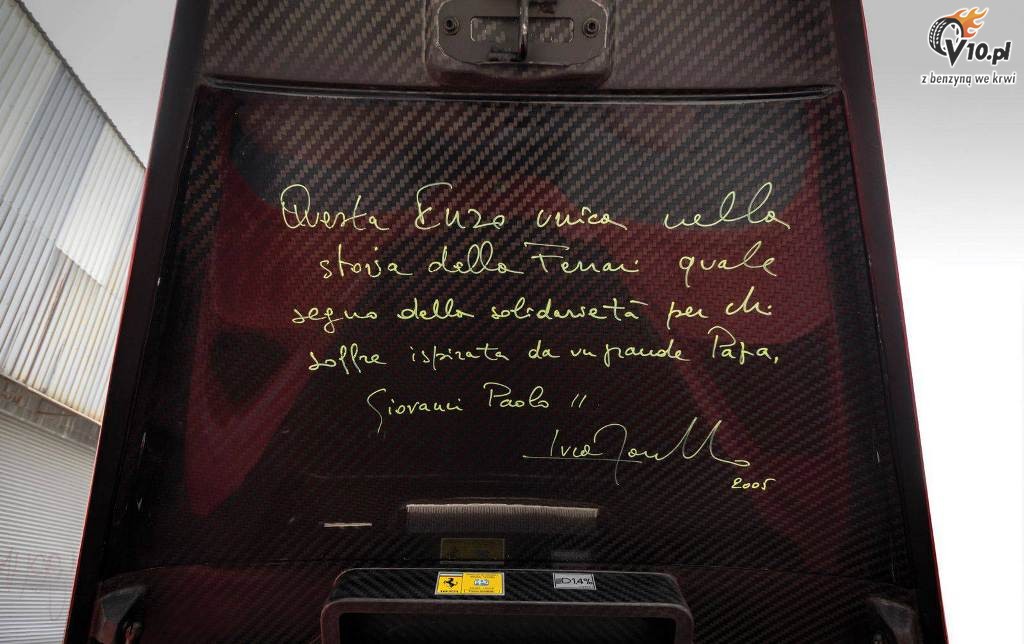 V10.pl
z benzyną we krwi
Questa Enzo unica nella
storia della Ferrari quale
segno della solidarietà per chi
soffre ispirata da un grande Papa,
Giovanni Paolo II
2005
1,4%